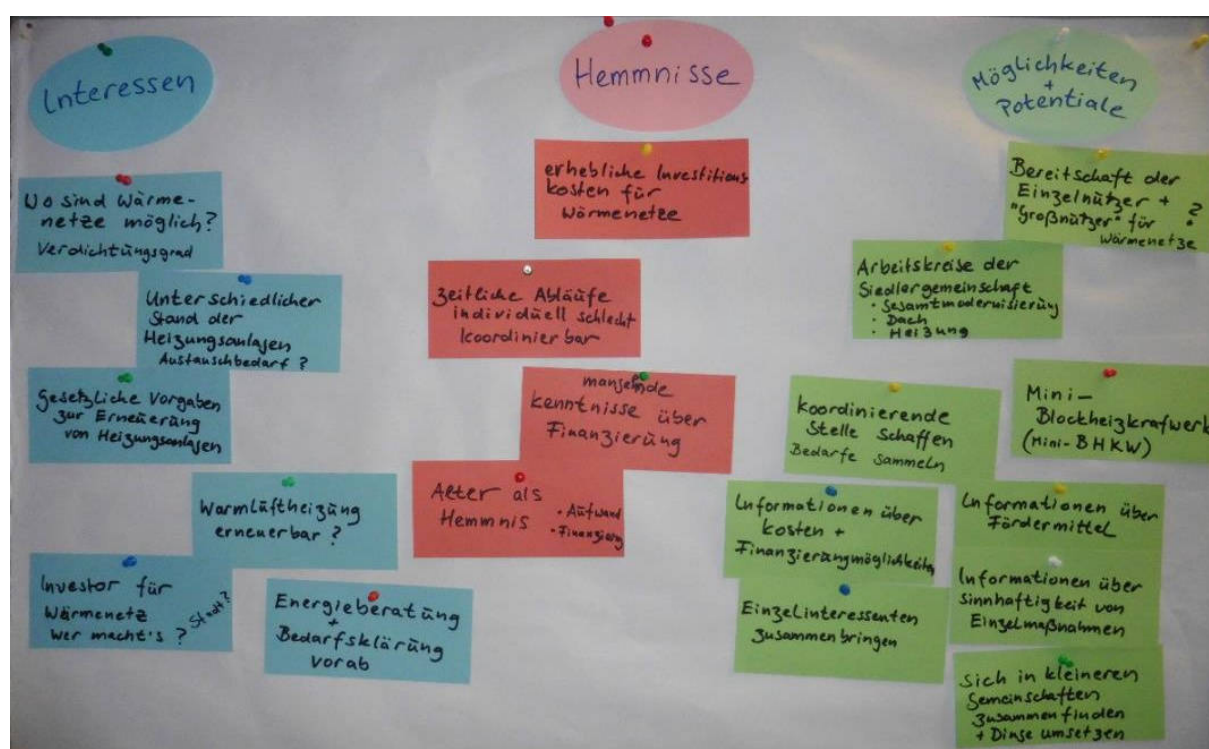 Interessen
Wo sind Wärme-
netze möglich?
Verdichtungsgrad
Unterschiedlicher
Stand der
Heizungsanlagen
Austauschbedarf?
Gesetzliche Vorgaben
zur Erneuerung
von Heizungsanlagen
Warmluftheizung
erneuerbar?
Investor für
Wärmenetz
Wer macht's? Stadt?
Energieberatung
+
Bedarfsklärung
vorab
Hemmnisse
erhebliche Investitions
kosten für
Wärmenetze
zeitliche Abläufe
individuell schlecht
koordinierbar
mangelnde
Kenntnisse über
Finanzierung
Alter als
Hemmnis
• Aufwand
• Finanzierung
Möglichkeiten
+
Potentiale
Bereitschaft der
Einzelnutzer +
"Großnutzer" für ?
Wärmenetze
Arbeitskreise der
Siedlergemeinschaft
• Gesamtmodernisierung
• Dach
• Heizung
koordinierende
Stelle schaffen
Bedarfe sammeln
Mini-
Blockheizkrafwerk
(Mini-BHKW)
Informationen über
Kosten +
Finanzierungmöglichkeiten
Informationen über
Fördermittel
Einzelinteressenten
zusammenbringen
Informationen über
Sinnhaftigkeit von
Einzelmaßnahmen
Sich in kleineren
Gemeinschaften
zusammenfinden
+ Dinge umsetzen